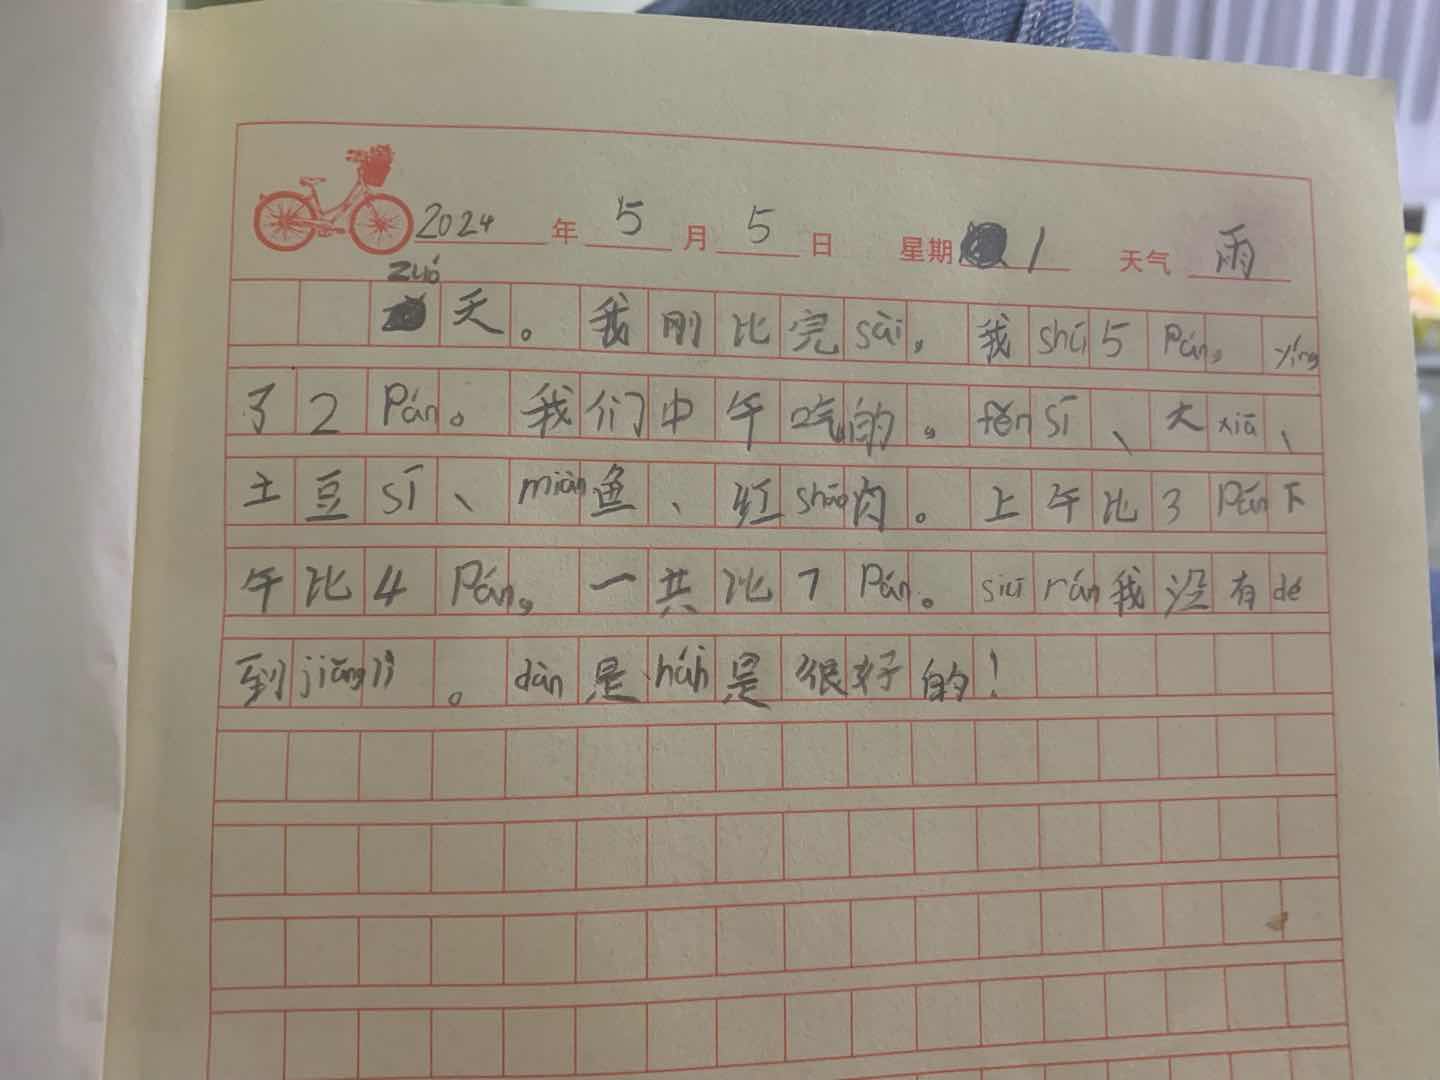 2024年5月5日 星期1 天气 雨
zuó
天。我刚比完sài,我shū5Pán,yíng
了2Pán。我们中午吃的。fěnsī、大xiā、
土豆sī、miàn鱼、红shāo肉。上午比3Pán下
午比4Pán,一共比7Pán。siūrán我没有dé
到jiǎnglì。dàn是hái是很好的!